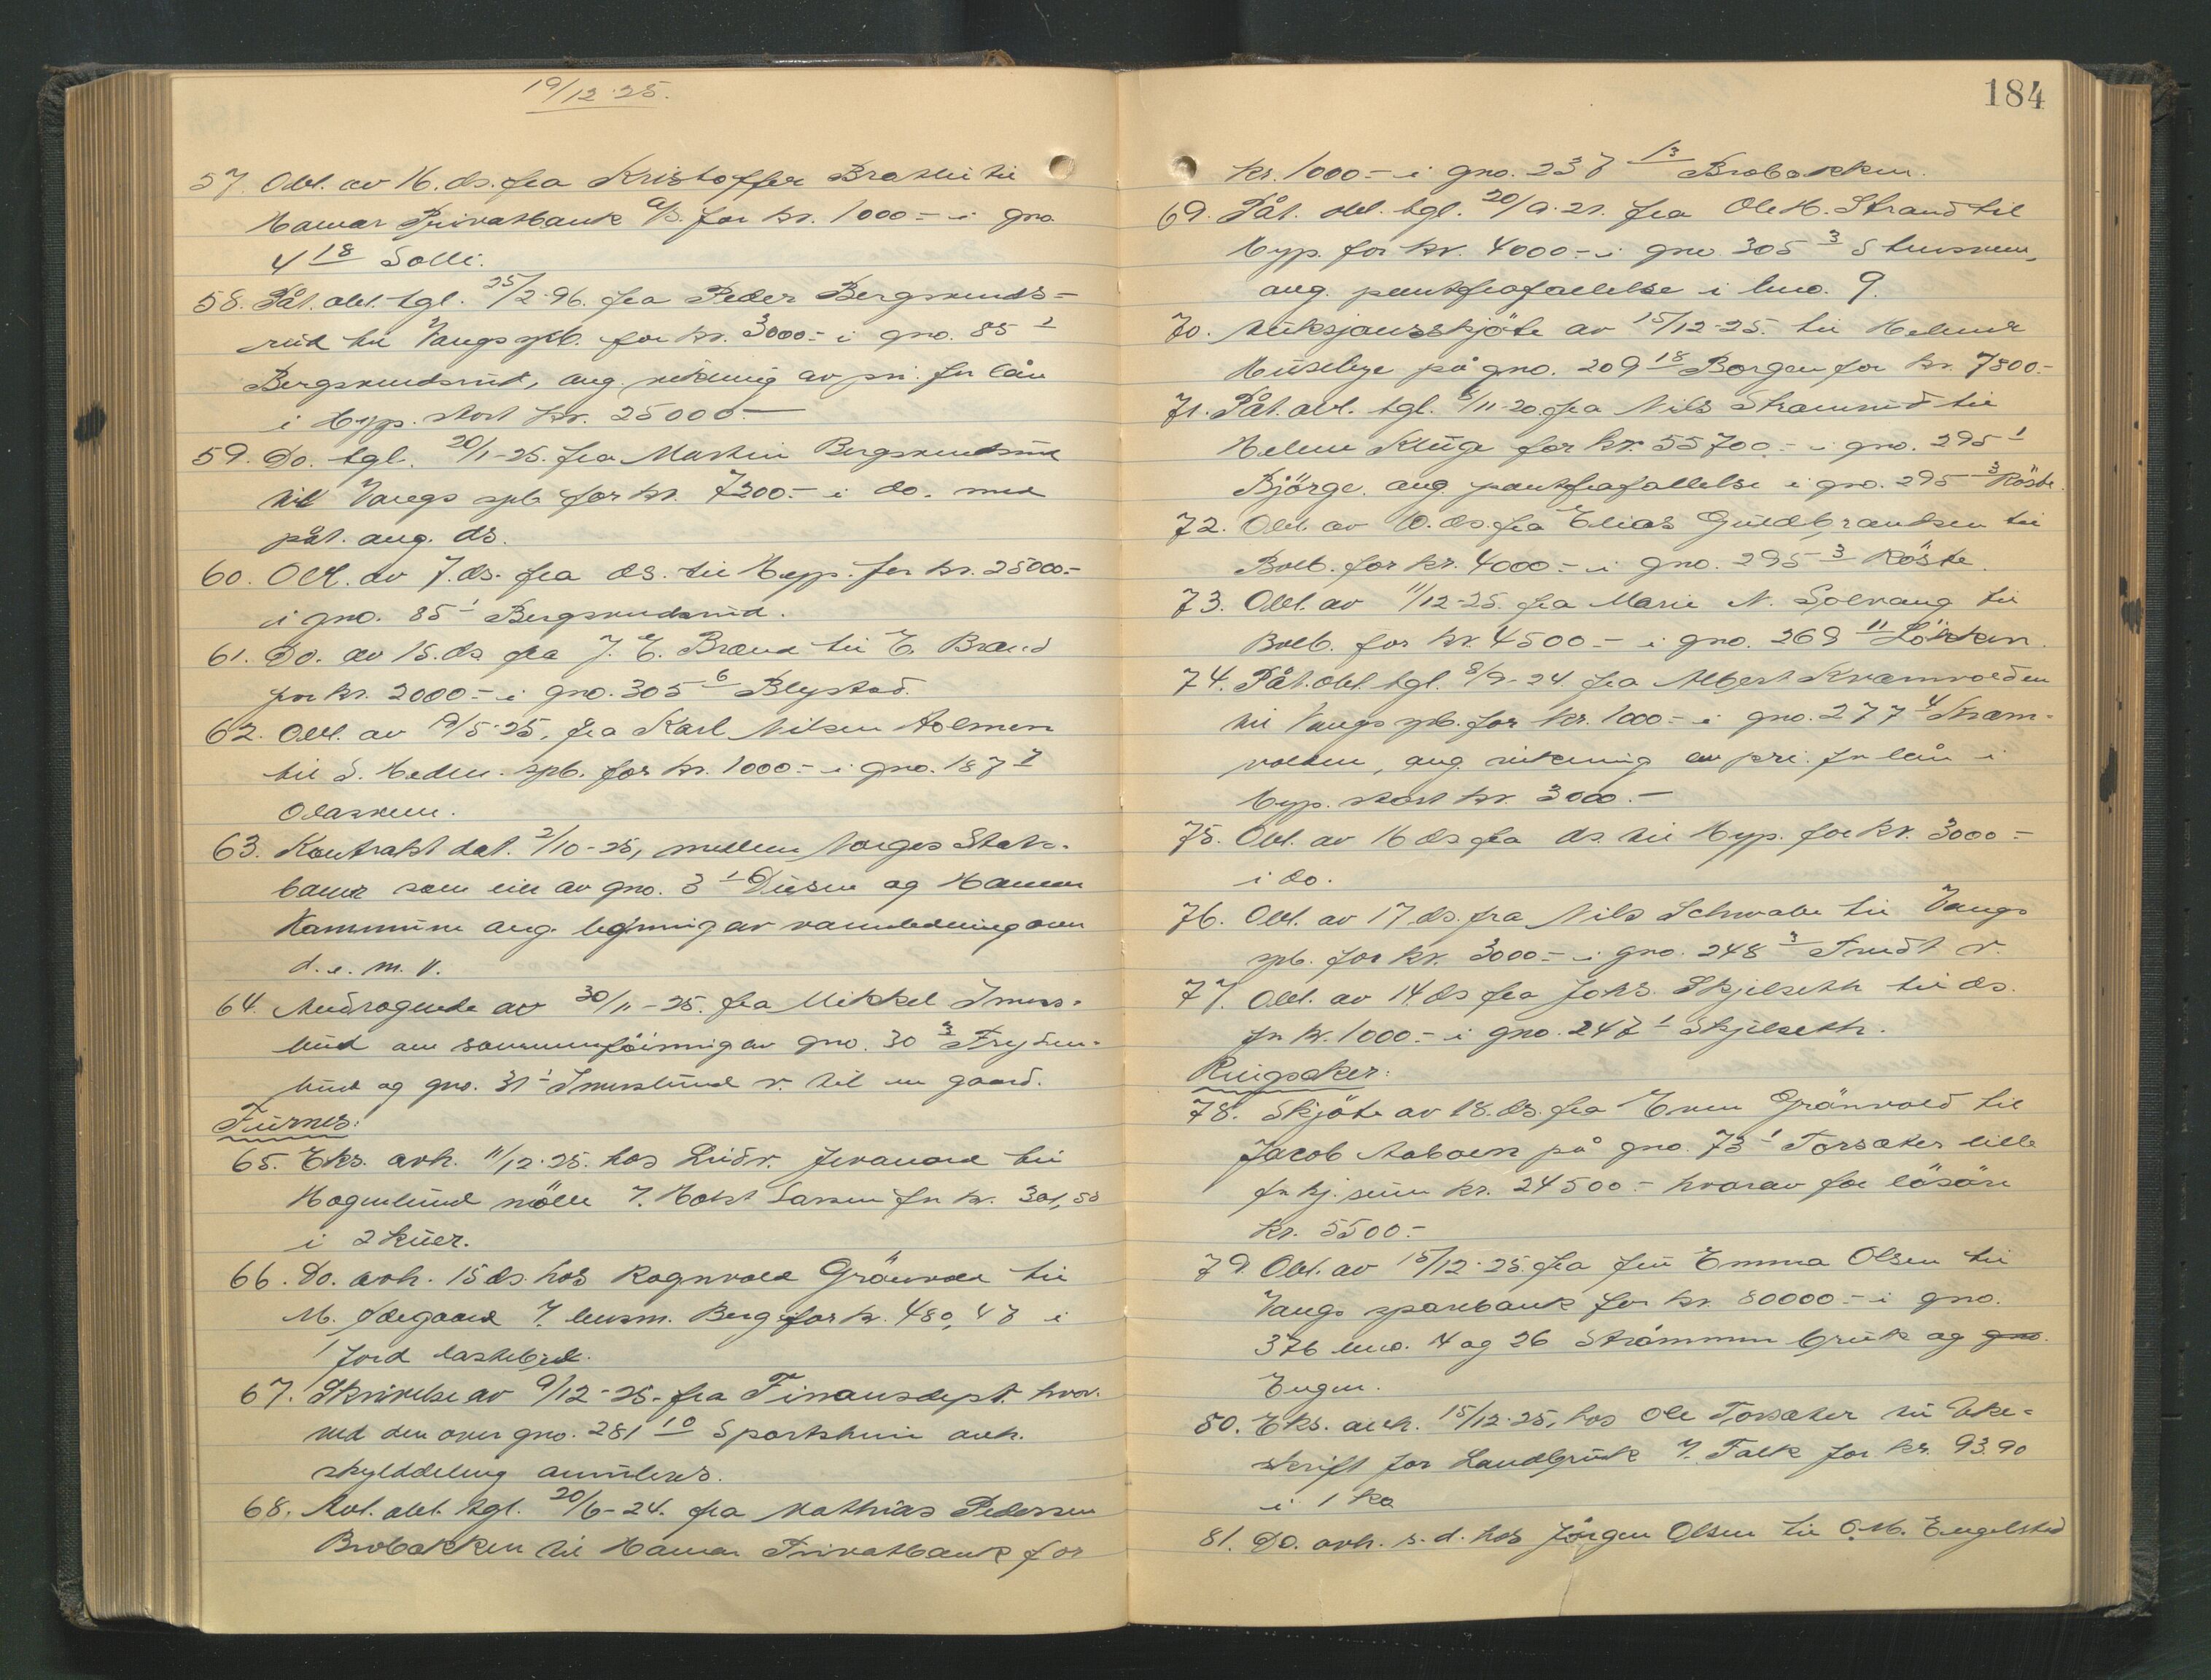 19/12-25.
57. Obl. av 16. ds. fra Kristoffer Bratlie til
Hamar Privatbank a/s. for kr. 1000.- i gno.
4 18 Solli.
58. Påt. obl. tgl. 25/2-96. fra Peder Bergsrunds-
rud til Vangs spb. for kr. 3000.- i gno. 85 1
ang. vikning av pri. for lån
i Hyp. stort kr. 25000.-
59. Do. tgl. 20/1-25. fra Martin
til Vangs spb. for kr. 7200.- i do. med
påt. ang. ds.
60. Obl. av 7. ds. fra ds. til Hyp. for kr. 25000.-
i gno. 85 1
61. Do. av 15. ds. fra J. E. Brænd til E. Brænd
for kr. 2000.- i gno. 305 6 Blystad.
62. Obl. av 19/5-25, fra Karl Nilsen Holmen
til S. Hedm. spb. for kr. 1000.- i gno. 187 7
63. Kontrakt dat. 2/10-25, mellem Norges Stats-
baner som eier av gno. 3 1 Disen og Hamar
Kommune ang. legning av vannledning over
d. e. m. v.
64. Andragende av 30/11-25. fra Mikkel Imers-
lund om sammenföining av gno. 30 3 Fryden-
lund og gno. 31 1 Imerslund v. til en gaard.
Furnes:
65. Eks. avh. 11/12-25. hos Ludv. Jevanord til
Hagenlund mölle v. Holst Larsen for kr. 301,50
i 2 kuer.
66. Do. avh. 15 ds. hos Ragnvald Grönvold til
M. Ödegaard v. lensm. Berg for kr. 480,48 i
1 Ford lastebil.
67. Skrivelse av 9/12-25. fra Finansdept. hvor-
ved den over gno. 281 10 avh.
skylddeling annuleres.
68. Avl. obl. tgl. 20/6-24. fra Mathias Pedersen
Brobakken til Hamar Privatbank for
184
kr. 1000.- i gno. 237 13 Brobakken.
69. Påt. obl. tgl. 20/9-21. fra Ole H. Strand til
Hyp. for kr. 4000.- i gno. 305 3
ang. pantefrafallelse i bno. 9.
70. Auksjonsskjöte av 15/12-25. til Helmer
Huseby på gno. 209 18 Borgen for kr. 7800.-
71. Påt. obl. tgl. 5/11-20. fra Nils til
Helene Kluge for kr. 55700.- i gno. 295 1
Björge. ang. pantefrafallelse i gno. 295 3 Röste.
72. Obl. av 10. ds. fra Elias Guldbrandsen til
Bolb. for kr. 4000.- i gno. 295 3 Röste.
73. Obl. av 11/12-25. fra Marie N. Solvang til
Bolb. for kr. 4500.- i gno. 269 11 Lökken.
74. Påt. obl. tgl. 8/9-24. fra Albert Kramvolden
til Vangs spb. for kr. 1000.- i gno. 277 4 Kram-
volden, ang. vikning av pri. for lån i
Hyp. stort kr. 3000.-
75. Obl. av 16 ds fra ds. til Hyp. for kr. 3000.-
i do.
76. Obl. av 17 ds. fra Nils Schwabe til Vangs
spb. for kr. 3000.- i gno. 248 3 v.
77. Obl. av 14 ds fra Johs. Skjelseth til ds.
for kr. 1000.- i gno. 247 1 Skjelseth.
Ringsaker:
78. Skjöte av 18. ds. fra Even Grönvold til
Jacob Aaboen på gno. 73 1 Torsæker lille
for kj. sum kr. 24500.- hvorav for lösöre
kr. 5500.-
79. Obl. av 15/12-25. fra fru Emma Olsen til
Vangs sparebank for kr. 80000.- i gno.
376 bno. 14 og 26 Strömmen bruk og gno.
Engen.
80. Eks. avh. 15/12-25, hos Ole Torsæker til Uke-
skrift for Landbruk v. Falk for kr. 93.90
i 1 ko
81. Do. avh. s.d. hos Jörgen Olsen til O. M. Engelstad